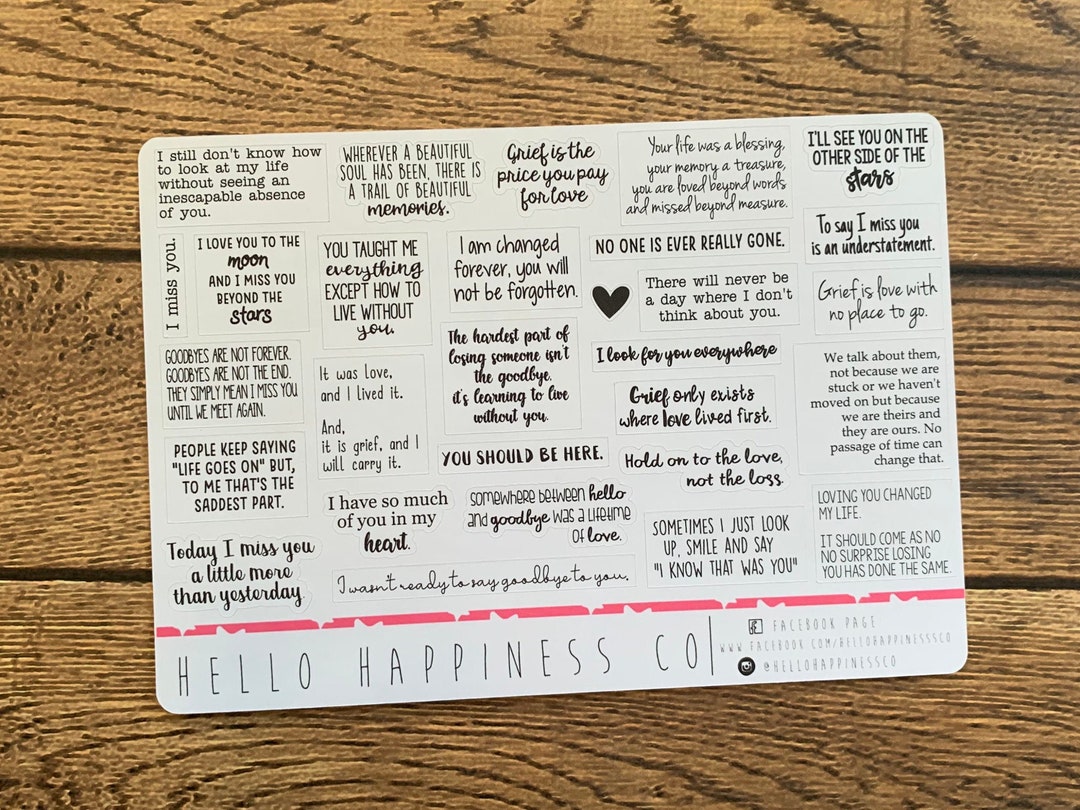 I still don't know how
to look at my life
without seeing an
inescapable absence
of you.
WHEREVER A BEAUTIFUL
SOUL HAS BEEN, THERE IS
A TRAIL OF BEAUTIFUL
memories.
Grief is the
price you pay
for love
Your life was a blessing,
your memory a treasure,
you are loved beyond words
and missed beyond measure.
I'LL SEE YOU ON THE
OTHER SIDE OF THE
stars
I miss you.
I LOVE YOU TO THE
moon
AND I MISS YOU
BEYOND THE
stars
YOU TAUGHT ME
everything
EXCEPT HOW TO
LIVE WITHOUT
you.
I am changed
forever, you will
not be forgotten.
NO ONE IS EVER REALLY GONE.
To say I miss you
is an understatement.
There will never be
a day where I don't
think about you.
Grief is love with
no place to go.
GOODBYES ARE NOT FOREVER.
GOODBYES ARE NOT THE END.
THEY SIMPLY MEAN I MISS YOU
UNTIL WE MEET AGAIN.
It was love,
and I lived it.
And,
it is grief, and I
will carry it.
The hardest part of
losing someone isn't
the goodbye.
it's learning to live
without you.
I look for you everywhere
Grief only exists
where love lived first.
We talk about them,
not because we are
stuck or we haven't
moved on but because
we are theirs and
they are ours. No
passage of time can
change that.
PEOPLE KEEP SAYING
"LIFE GOES ON" BUT,
TO ME THAT'S THE
SADDEST PART.
YOU SHOULD BE HERE.
Hold on to the love,
not the loss.
I have so much
of you in my
heart.
somewhere between hello
and goodbye was a lifetime
of love.
SOMETIMES I JUST LOOK
UP, SMILE AND SAY
"I KNOW THAT WAS YOU"
LOVING YOU CHANGED
MY LIFE.
IT SHOULD COME AS NO
NO SURPRISE LOSING
YOU HAS DONE THE SAME.
Today I miss you
a little more
than yesterday.
I wasn't ready to say goodbye to you.
HELLO HAPPINESS CO
FACEBOOK PAGE
WWW.FACEBOOK.COM/HELLOHAPPINESSSCO
@HELLOHAPPINESSCO